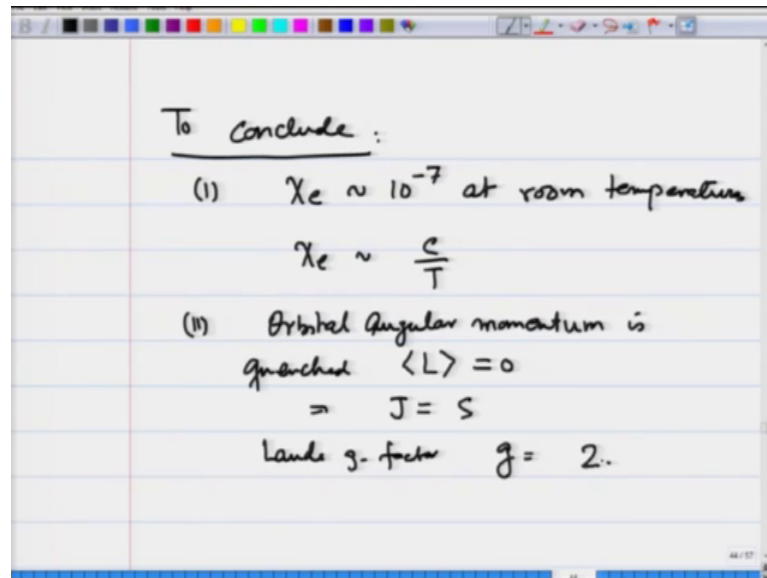 To conclude :
(I) χe ~ 10⁻⁷ at room temperature
χe ~ C/T
(II) Orbital Angular momentum is
quenched <L> = 0
⇒ J = S
Lande g-factor g = 2.
44/57